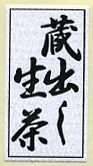 蔵出し
生茶